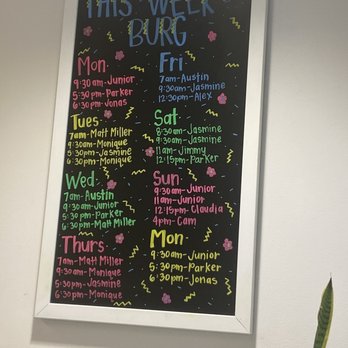 THIS WEEK
BURG
Mon
9:30am-Junior
5:30pm-Parker
6:30pm-Jonas
Tues
7am-Matt Miller
9:30am-Monique
5:30pm-Jasmine
6:30pm-Monique
Wed
7am-Austin
9:30am-Junior
5:30pm-Parker
6:30pm-Matt Miller
Thurs
7am-Matt Miller
9:30am-Monique
5:30pm-Jasmine
6:30pm-Monique
Fri
7am-Austin
9:30am-Jasmine
12:30pm-Alex
Sat
8:30am-Jasmine
9:30am-Jasmine
11am-Jimmy
12:15pm-Parker
Sun
9:30am-Junior
11am-Junior
12:15pm-Claudia
4pm-Cam
Mon
9:30am-Junior
5:30pm-Parker
6:30pm-Jonas